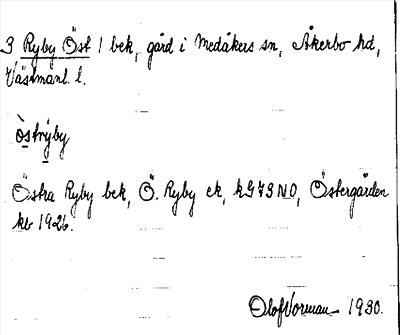 3 Ryby Öst 1 bek, gård i Medåkers sn, Åkerbo hd,
Västmanl. l.
òstrỳby
Östra Ryby bek, Ö. Ryby ek, kG73NO, Östergården
kb 1926.
Olof Vorman 1930.